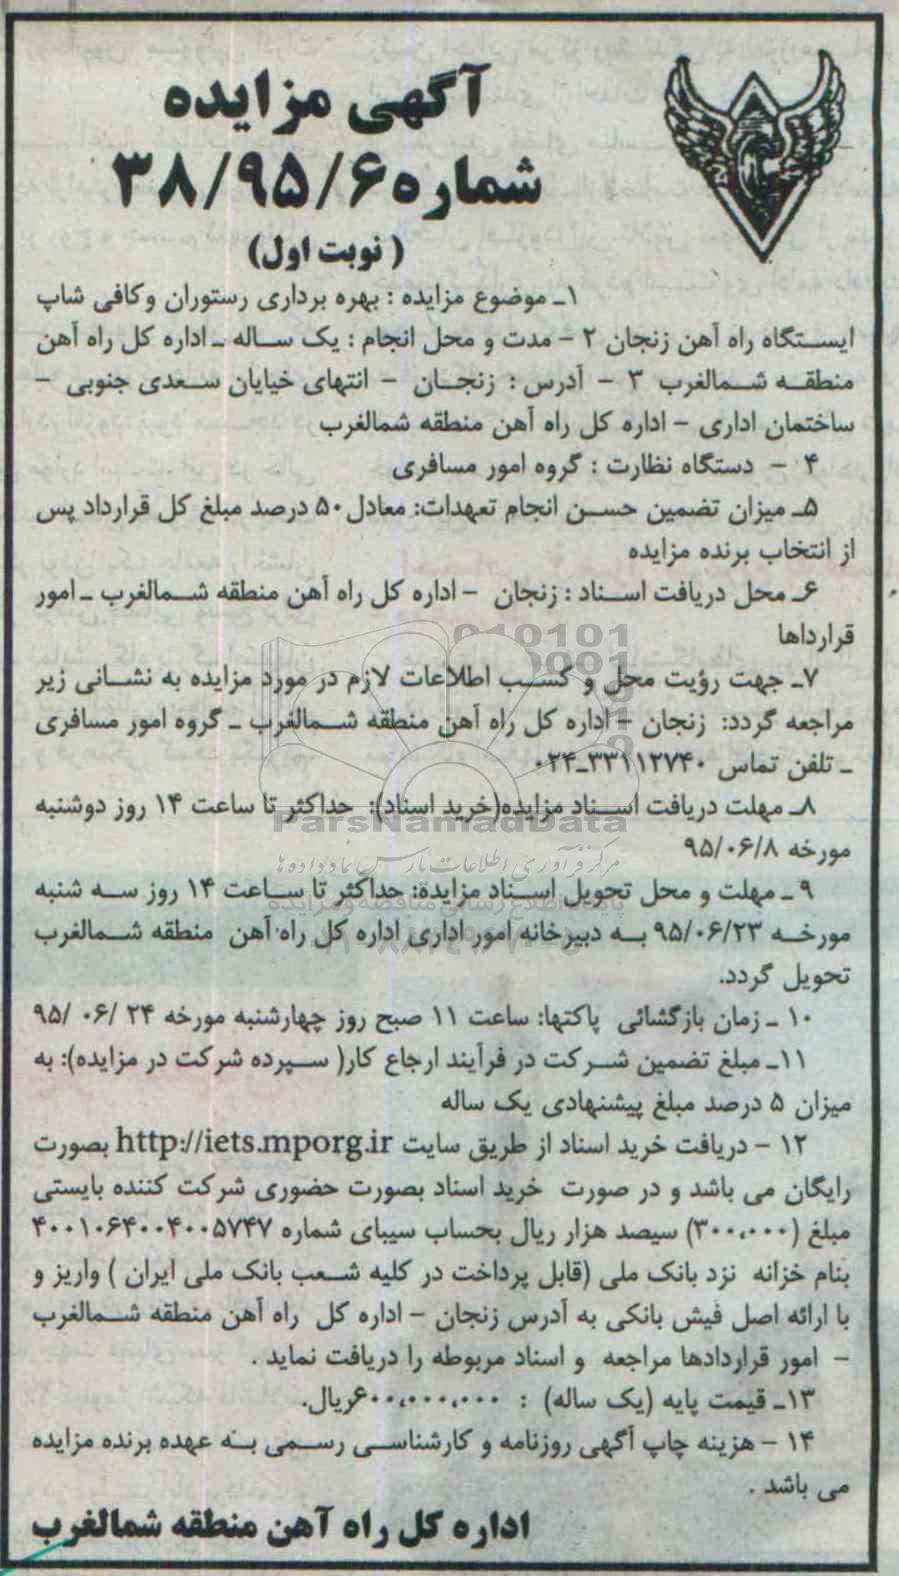 آگهی مزایده
شماره ۳۸/۹۵/۶
( نوبت اول)
۱ـ موضوع مزایده : بهره برداری رستوران و کافی شاپ
ایستگاه راه آهن زنجان ۲ - مدت و محل انجام : یک ساله ـ اداره کل راه آهن
منطقه شمالغرب ۳ - آدرس : زنجان - انتهای خیابان سعدی جنوبی -
ساختمان اداری - اداره کل راه آهن منطقه شمالغرب
۴ - دستگاه نظارت : گروه امور مسافری
۵ـ میزان تضمین حسن انجام تعهدات: معادل ۵۰ درصد مبلغ کل قرارداد پس
از انتخاب برنده مزایده
۶ـ محل دریافت اسناد : زنجان - اداره کل راه آهن منطقه شمالغرب ـ امور
قراردادها
۷ـ جهت رؤیت محل و کسب اطلاعات لازم در مورد مزایده به نشانی زیر
مراجعه گردد: زنجان - اداره کل راه آهن منطقه شمالغرب ـ گروه امور مسافری
ـ تلفن تماس ۳۳۱۱۲۷۴۰-۰۲۴
۸ـ مهلت دریافت اسناد مزایده(خرید اسناد): حداکثر تا ساعت ۱۴ روز دوشنبه
ParsNamadData
مورخه ۹۵/۰۶/۸
مرکز فرآوری اطلاعات پارس نماد داده ها
۹ ـ مهلت و محل تحویل اسناد مزایده: حداکثر تا ساعت ۱۴ روز سه شنبه
مورخه ۹۵/۰۶/۲۳ به دبیرخانه امور اداری اداره کل راه آهن منطقه شمالغرب
تحویل گردد.
۱۰ ـ زمان بازگشائی پاکتها: ساعت ۱۱ صبح روز چهارشنبه مورخه ۲۴ /۰۶ /۹۵
۱۱ـ مبلغ تضمین شرکت در فرآیند ارجاع کار( سپرده شرکت در مزایده): به
میزان ۵ درصد مبلغ پیشنهادی یک ساله
۱۲ - دریافت خرید اسناد از طریق سایت http://iets.mporg.ir بصورت
رایگان می باشد و در صورت خرید اسناد بصورت حضوری شرکت کننده بایستی
مبلغ (۳۰۰،۰۰۰) سیصد هزار ریال بحساب سیبای شماره ۴۰۰۱۰۶۴۰۰۴۰۰۵۷۴۷
بنام خزانه نزد بانک ملی (قابل پرداخت در کلیه شعب بانک ملی ایران ) واریز و
با ارائه اصل فیش بانکی به آدرس زنجان - اداره کل راه آهن منطقه شمالغرب
- امور قراردادها مراجعه و اسناد مربوطه را دریافت نماید .
۱۳ـ قیمت پایه (یک ساله) : ۶۰۰،۰۰۰،۰۰۰ریال.
۱۴ - هزینه چاپ آگهی روزنامه و کارشناسی رسمی به عهده برنده مزایده
می باشد .
اداره کل راه آهن منطقه شمالغرب